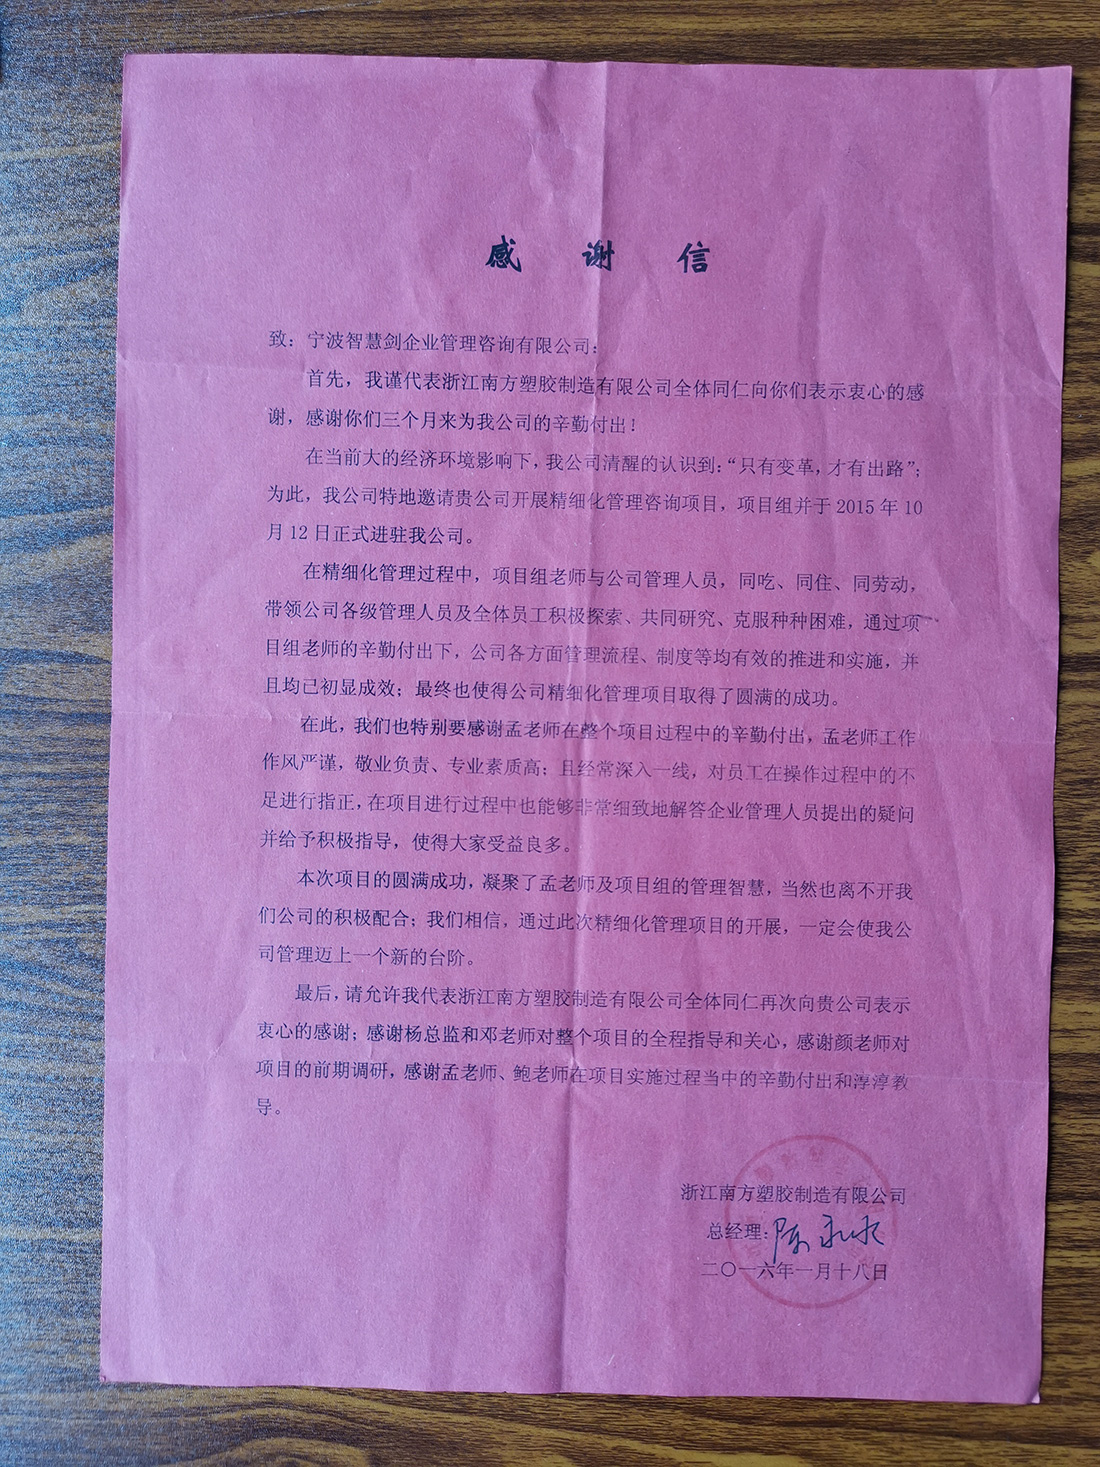 感 谢 信
致：宁波智慧剑企业管理咨询有限公司：
首先，我谨代表浙江南方塑胶制造有限公司全体同仁向你们表示衷心的感
谢，感谢你们三个月来为我公司的辛勤付出！
在当前大的经济环境影响下，我公司清醒的认识到：“只有变革，才有出路”；
为此，我公司特地邀请贵公司开展精细化管理咨询项目，项目组并于 2015 年 10
月 12 日正式进驻我公司。
在精细化管理过程中，项目组老师与公司管理人员，同吃、同住、同劳动，
带领公司各级管理人员及全体员工积极探索、共同研究、克服种种困难，通过项
目组老师的辛勤付出下，公司各方面管理流程、制度等均有效的推进和实施，并
且均已初显成效；最终也使得公司精细化管理项目取得了圆满的成功。
在此，我们也特别要感谢孟老师在整个项目过程中的辛勤付出，孟老师工作
作风严谨，敬业负责、专业素质高；且经常深入一线，对员工在操作过程中的不
足进行指正，在项目进行过程中也能够非常细致地解答企业管理人员提出的疑问
并给予积极指导，使得大家受益良多。
本次项目的圆满成功，凝聚了孟老师及项目组的管理智慧，当然也离不开我
们公司的积极配合；我们相信，通过此次精细化管理项目的开展，一定会使我公
司管理迈上一个新的台阶。
最后，请允许我代表浙江南方塑胶制造有限公司全体同仁再次向贵公司表示
衷心的感谢；感谢杨总监和邓老师对整个项目的全程指导和关心，感谢颜老师对
项目的前期调研，感谢孟老师、鲍老师在项目实施过程当中的辛勤付出和淳淳教
导。
浙江南方塑胶制造有限公司
总经理：陈永水
二〇一六年一月十八日